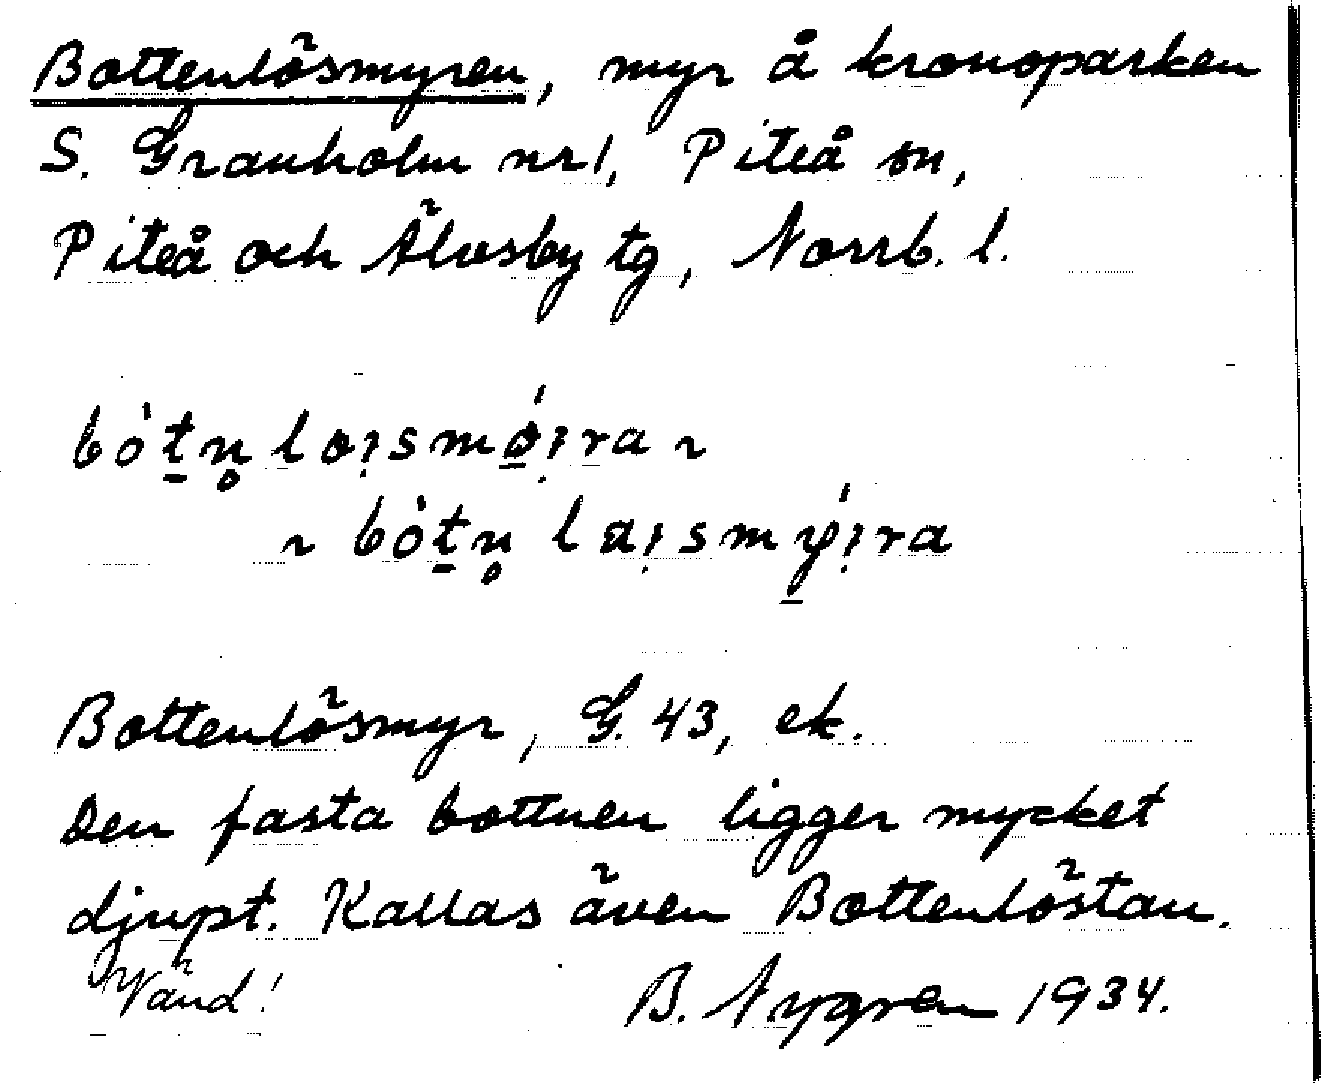 Bottenlösmyren, myr å kronoparken
S. Granholm nr 1, Piteå sn,
Piteå och Älvsby tg, Norrb. l.
bò̀t̠n̥ lɑı̣smǿı̣ra ~
~ bò̀t̠n̥ laı̣smý̠ı̣ra
Bottenlösmyr, G. 43, ek.
Den fasta bottnen ligger mycket
djupt. Kallas även Bottenlöstan.
Vänd! B. Nygren 1934.